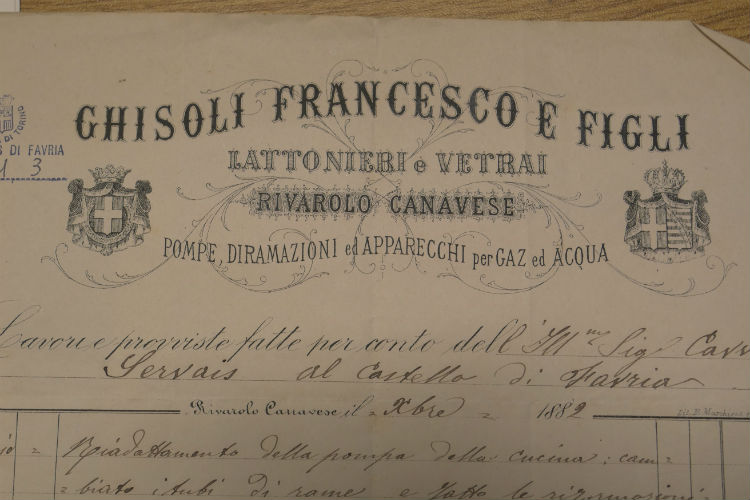 GHISOLI FRANCESCO E FIGLI
DI TORINO
DI FAVRIA
3
LATTONIERI e VETRAI
RIVAROLO CANAVESE
POMPE, DIRAMAZIONI ed APPARECCHI per GAZ ed ACQUA
Lavori e provviste fatte per conto dell' Ill.mo Sig Cav
Servais al Castello di Favria
Rivarolo Canavese, il Xbre 1882
Riadattamento della pompa della cucina; cam=
=biato i tubi di rame e fatto le riparazioni